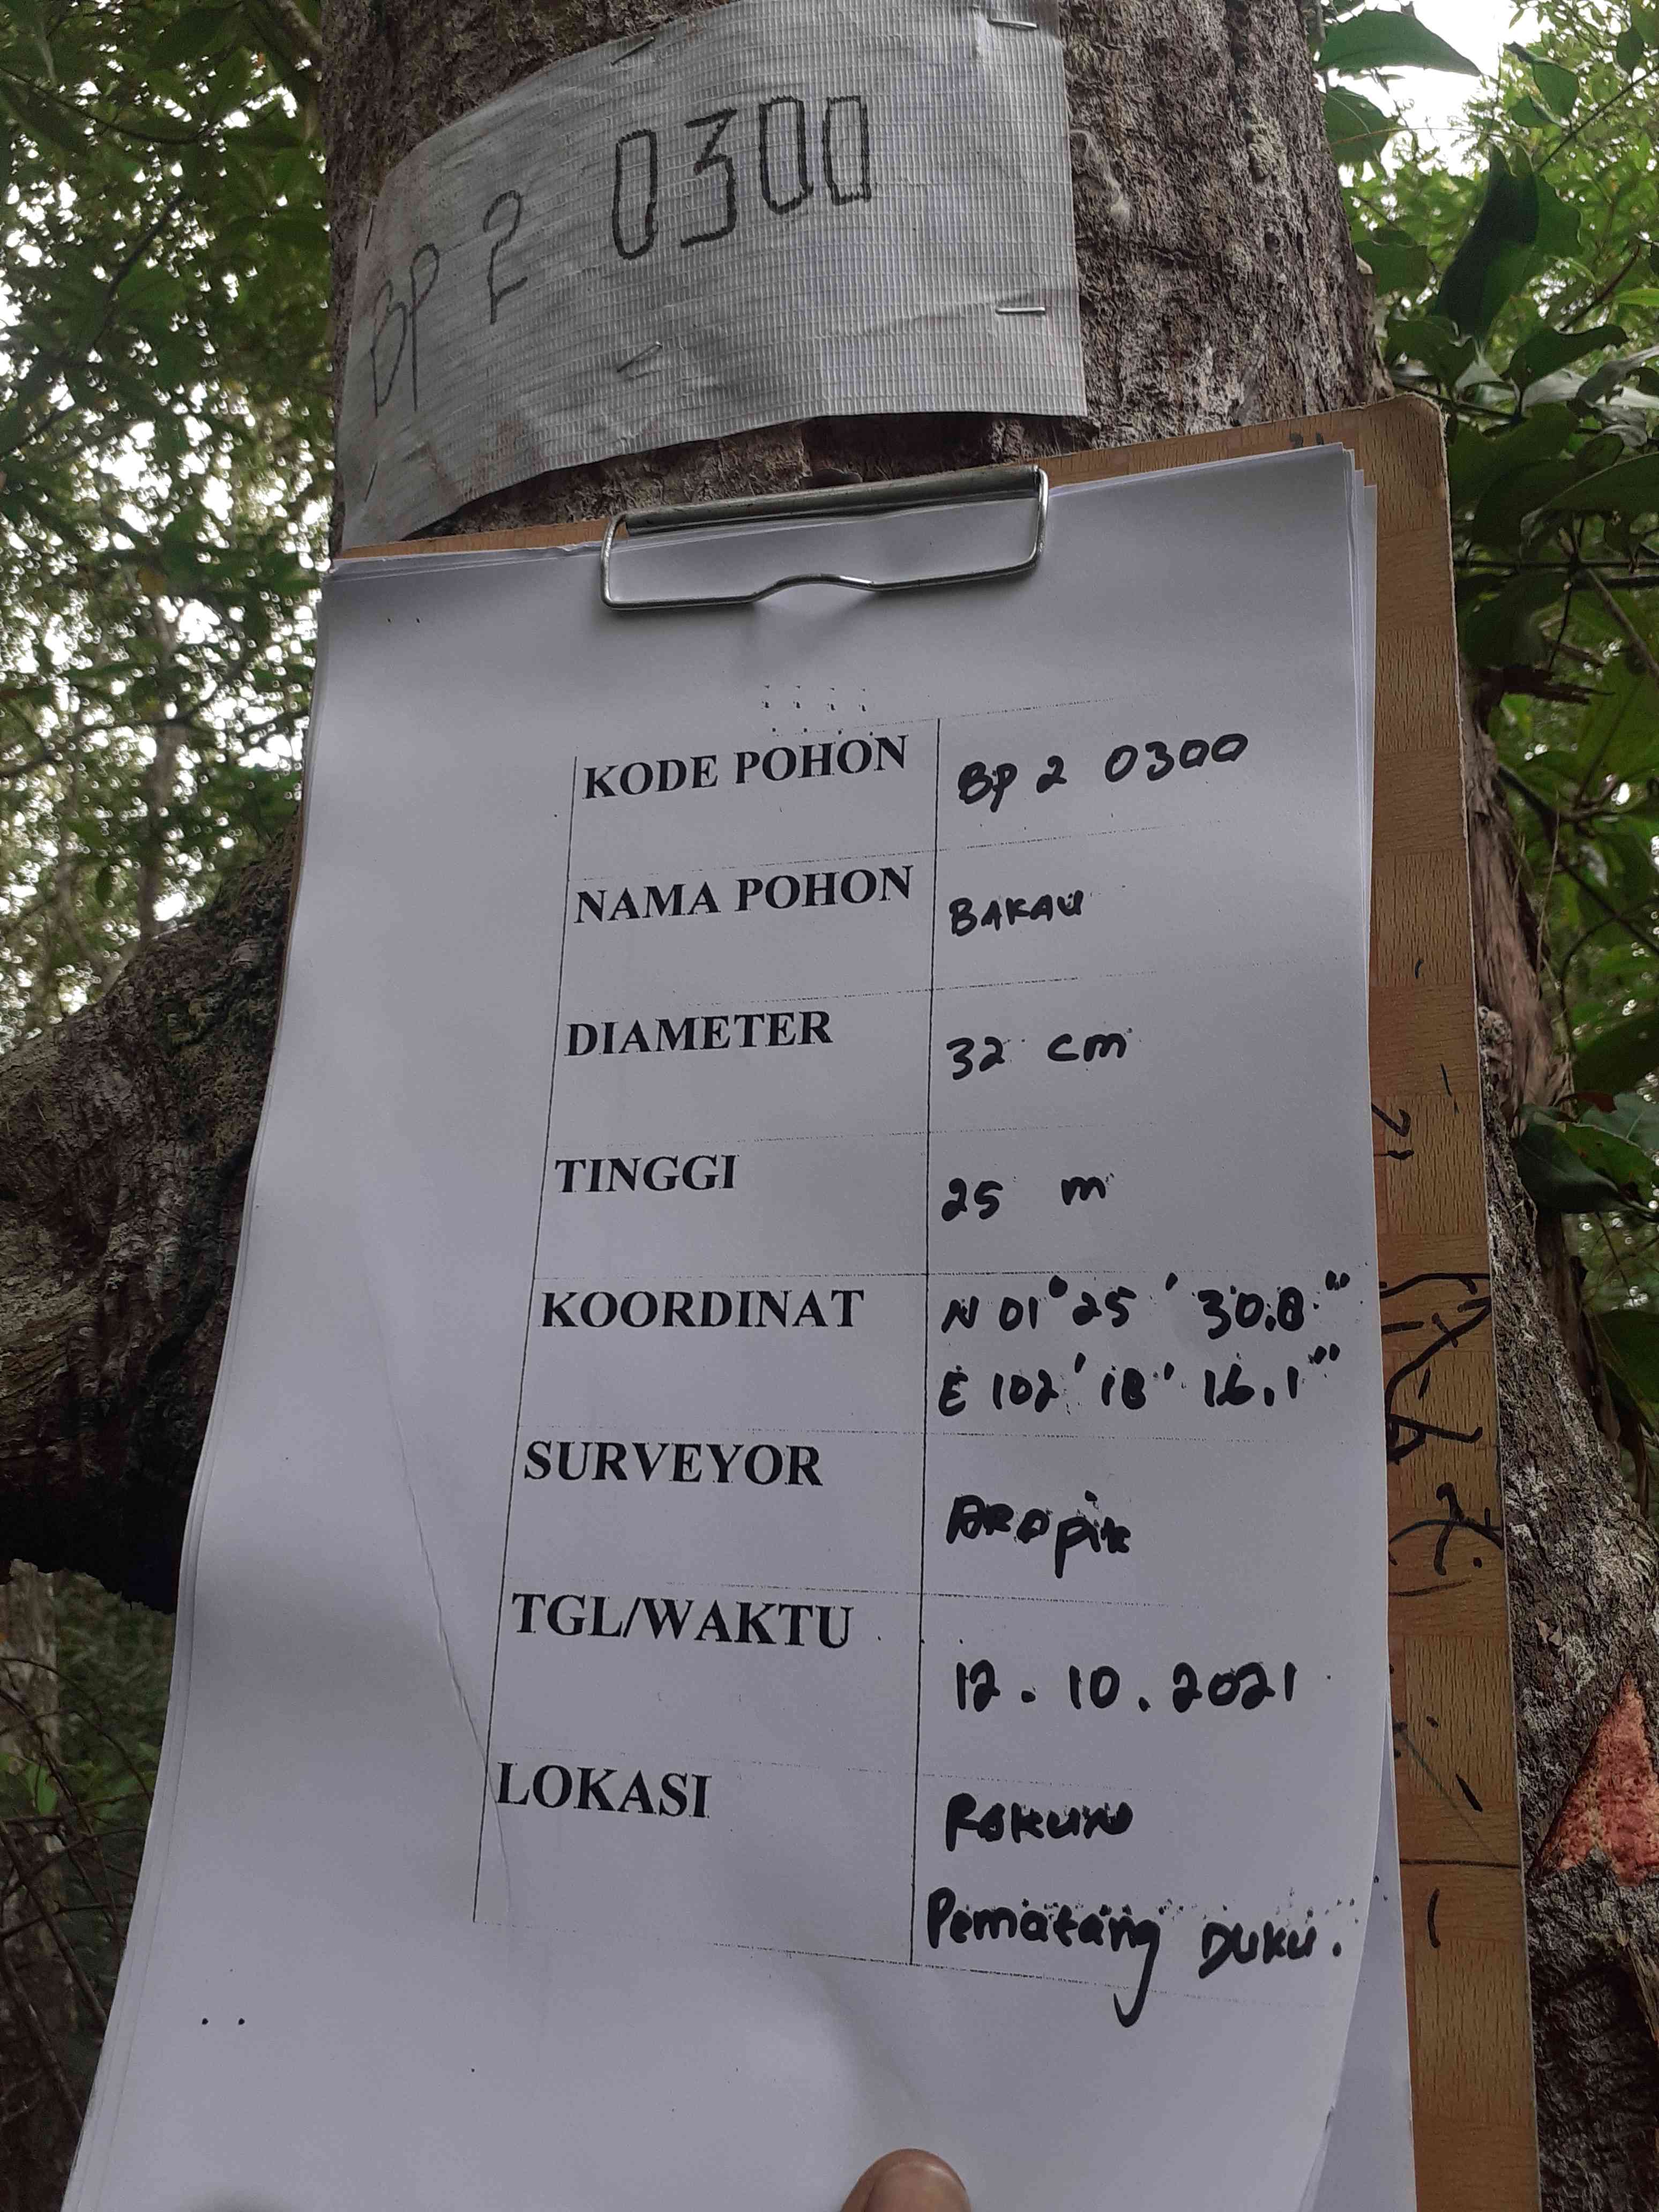 BP 2 0300
KODE POHON BP 2 0300
NAMA POHON BAKAU
DIAMETER 32 cm
TINGGI 25 m
KOORDINAT N 01° 25' 30.8"
E 102' 18' 16.1"
SURVEYOR AROPIK
TGL/WAKTU 12.10.2021
LOKASI
Pematang DUKU.